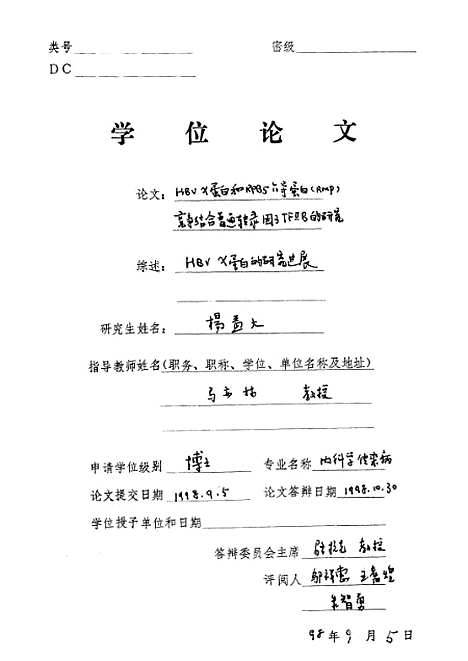 类号 密级
DC
学 位 论 文
论文: HBV X蛋白和RPB5介导蛋白(RMP)
竞争结合普通转录因子TFⅡB的研究
综述: HBV X蛋白的研究进展
研究生姓名: 杨
指导教师姓名(职务、职称、学位、单位名称及地址)
马 教授
申请学位级别 博士 专业名称 内科学传染病
论文提交日期 1998.9.5 论文答辩日期 1998.10.30
学位授予单位和日期
答辩委员会主席 教授
评阅人 王
朱智勇
98年9月5日